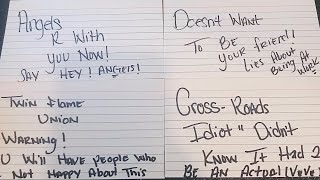 Angels
R With
you Now!
SAY HEY! ANGELS!
Doesnt Want
To BE
your friend!
Lies About
Being At
WORK
Twin flame
Union
Warning!
U Will Have People Who
Not Happy About This
Cross-Roads
Idiot" Didnt
Know It Had 2
BE AN Actual (Veve)